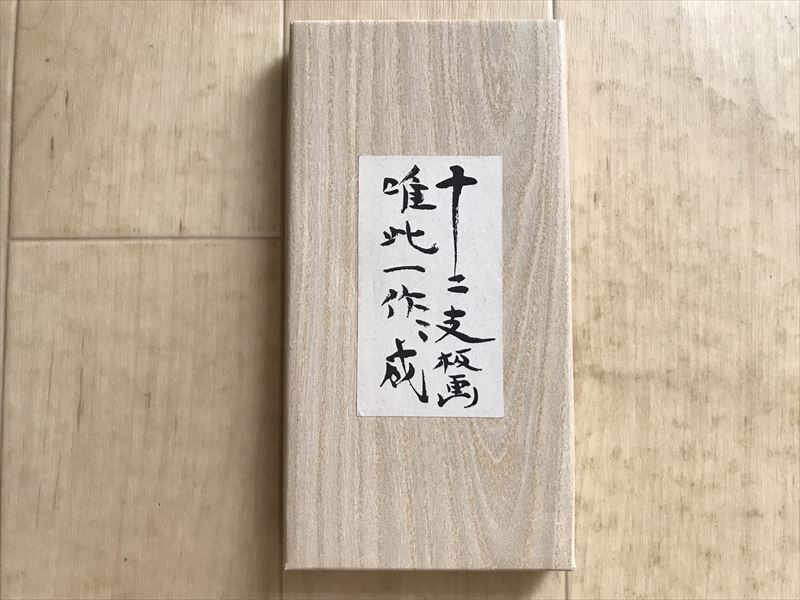 十二支板画
唯此一作ニ成